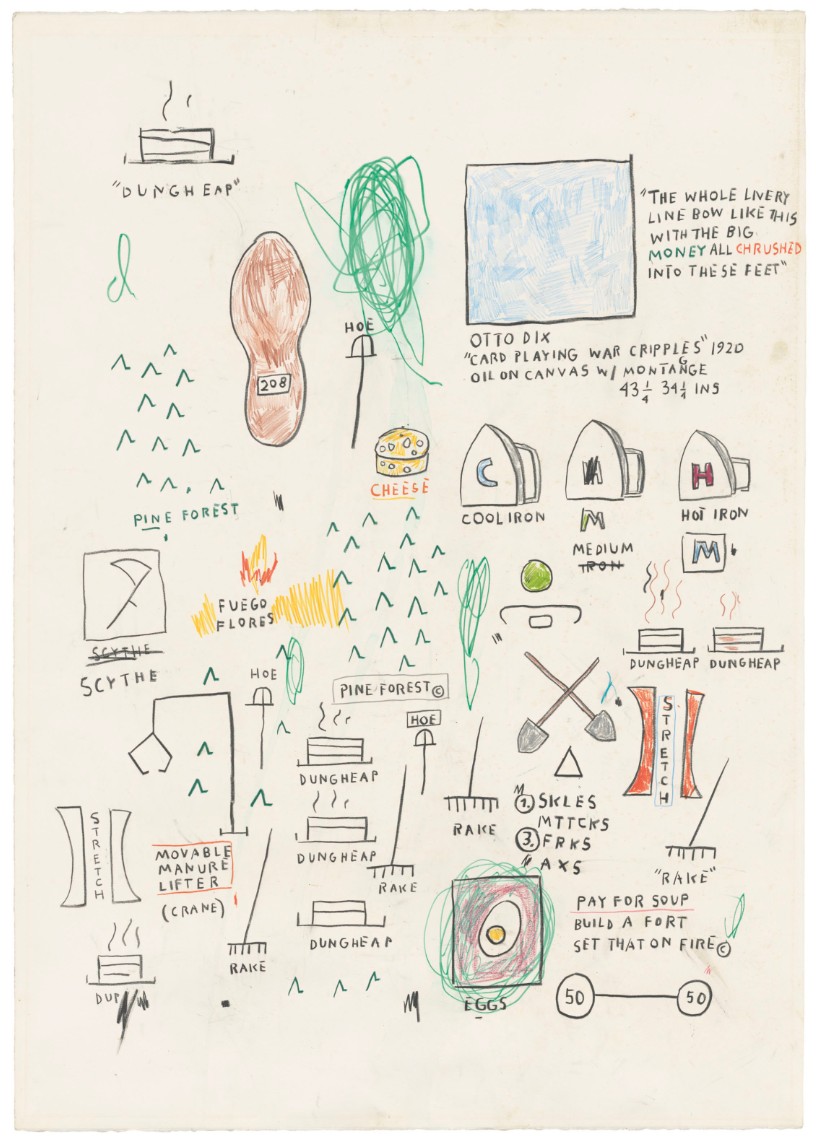 "DUNGHEAP"
"THE WHOLE LIVERY
LINE BOW LIKE THIS
WITH THE BIG
MONEY ALL CHRUSHED
INTO THESE FEET"
HOE
208
OTTO DIX
"CARD PLAYING WAR CRIPPLES" 1920
OIL ON CANVAS W/ MONTANGE
G
43 1/4 34 1/4 INS
CHEESE
C
M
H
COOL IRON
M
MEDIUM
IRON
HOT IRON
M
PINE FOREST
FUEGO
FLORES
SCYTHE
SCYTHE
HOE
PINE FOREST©
HOE
DUNGHEAP
DUNGHEAP
STRETCH
DUNGHEAP
RAKE
1. SKLES
MTTCKS
3. FRKS
" AXS
"RAKE"
STRETCH
MOVABLE
MANURE
LIFTER
(CRANE)
DUNGHEAP
RAKE
DUNGHEAP
RAKE
PAY FOR SOUP
BUILD A FORT
SET THAT ON FIRE©
DU
EGGS
50
50